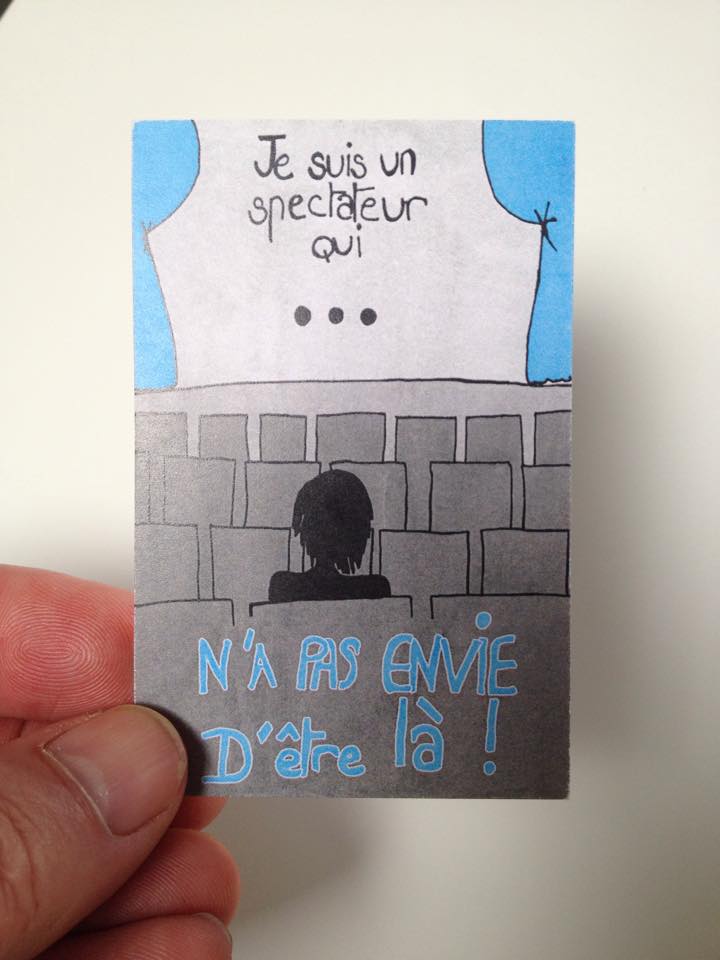 Je suis un
spectateur
qui
...
N'A PAS ENVIE
D'être là !